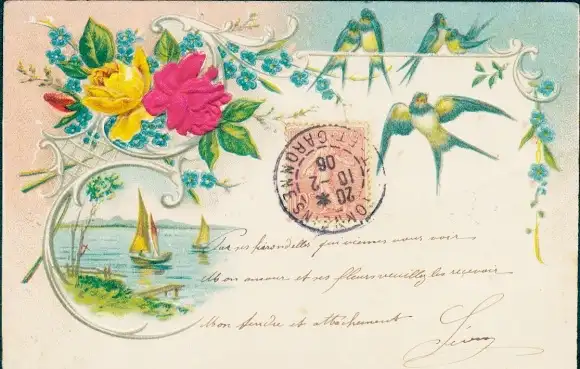 TONNEINS
LT-GARONNE
20 *
10 -2
06
Par ses hirondelles qui viennes vous voir
Mon amour et ses fleurs veuillez les recevoir
Mon tendre et attâchement